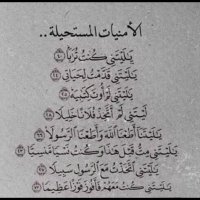 الأمنيات المستحيلة ..
يَٰلَيْتَنِى كُنتُ تُرَٰبًۢا ٤٠
يَٰلَيْتَنِى قَدَّمْتُ لِحَيَاتِى ٢٤
يَٰلَيْتَنِى لَمْ أُوتَ كِتَٰبِيَهْ ٢٥
لَيْتَنِى لَمْ أَتَّخِذْ فُلَانًا خَلِيلًا ٢٨
يَٰلَيْتَنَآ أَطَعْنَا ٱللَّهَ وَأَطَعْنَا ٱلرَّسُولَا۠ ٦٦
يَٰلَيْتَنِى مِتُّ قَبْلَ هَٰذَا وَكُنتُ نَسْيًا مَّنسِيًّا ٢٣
يَٰلَيْتَنِى ٱتَّخَذْتُ مَعَ ٱلرَّسُولِ سَبِيلًا ٢٧
يَٰلَيْتَنِى كُنتُ مَعَهُمْ فَأَفُوزَ فَوْزًا عَظِيمًا ٧٣